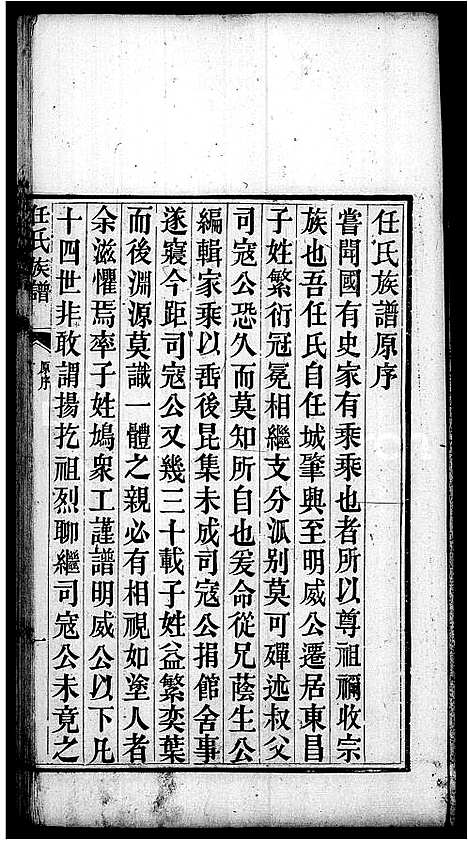 任氏族譜原序
嘗聞國有史家有乘乘也者所以尊祖禰收宗
族也吾任氏自任城肇興至明威公遷居東昌
子姓繁衍冠冕相繼支分泒别莫可殫述叔父
司寇公恐久而莫知所自也爰命從兄蔭生公
編輯家乘以垂後昆集未成司寇公捐館舍事
遂寢今距司寇公又幾三十載子姓益繁奕葉
而後淵源莫識一體之親必有相視如塗人者
余滋懼焉率子姓鳩衆工謹譜明威公以下凡
十四世非敢謂揚扢祖烈聊繼司寇公未竟之
任氏族譜
原序
一